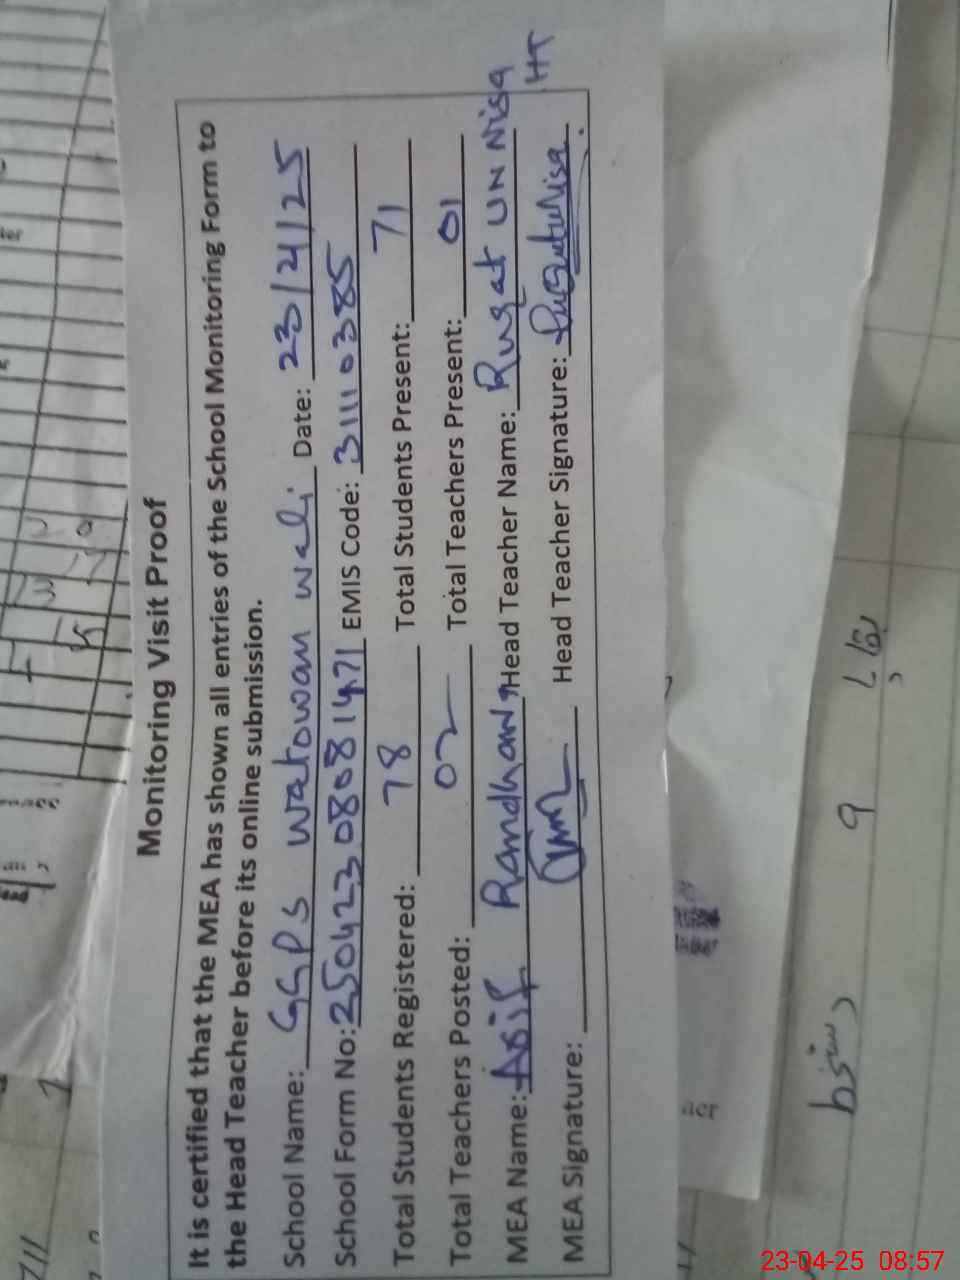 Monitoring Visit Proof
It is certified that the MEA has shown all entries of the School Monitoring Form to
the Head Teacher before its online submission.
School Name: GGPS watowan wali Date: 23/4/25
School Form No: 25042308081471 EMIS Code: 31110385
Total Students Registered: 78 Total Students Present: 71
Total Teachers Posted: 02 Total Teachers Present: 01
MEA Name: Asif Randhawa Head Teacher Name: Ruqat UN Nisa
HT
MEA Signature: Head Teacher Signature:
23-04-25 08:57